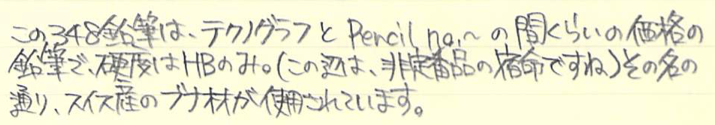 この348鉛筆は、テクノグラフとPencil no.〜の間くらいの価格の
鉛筆で、硬度はHBのみ。(この辺は、非定番品の宿命ですね)その名の
通り、スイス産のブナ材が使用されています。